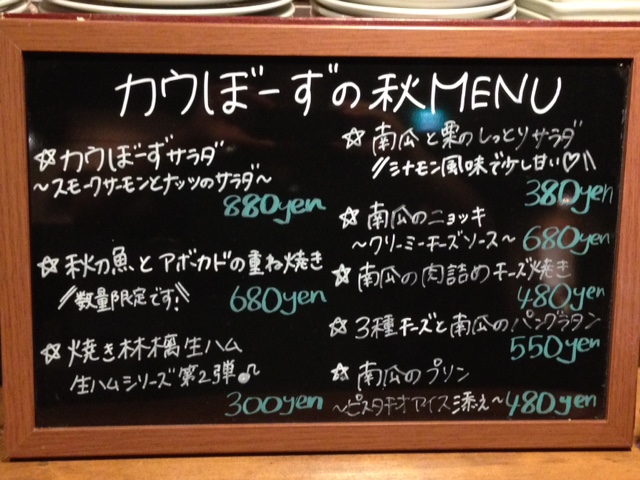 カウぼーずの秋MENU
☆カウぼーずサラダ
～スモークサーモンとナッツのサラダ～
880yen
☆秋刀魚とアボカドの重ね焼き
数量限定です!
680yen
☆焼き林檎生ハム
生ハムシリーズ第2弾♪
300yen
☆南瓜と栗のしっとりサラダ
シナモン風味で少し甘い♡
380yen
☆南瓜のニョッキ
～クリーミーチーズソース～ 680yen
☆南瓜の肉詰めチーズ焼き
480yen
☆3種チーズと南瓜のパングラタン
550yen
☆南瓜のプリン
～ピスタチオアイス添え～ 480yen